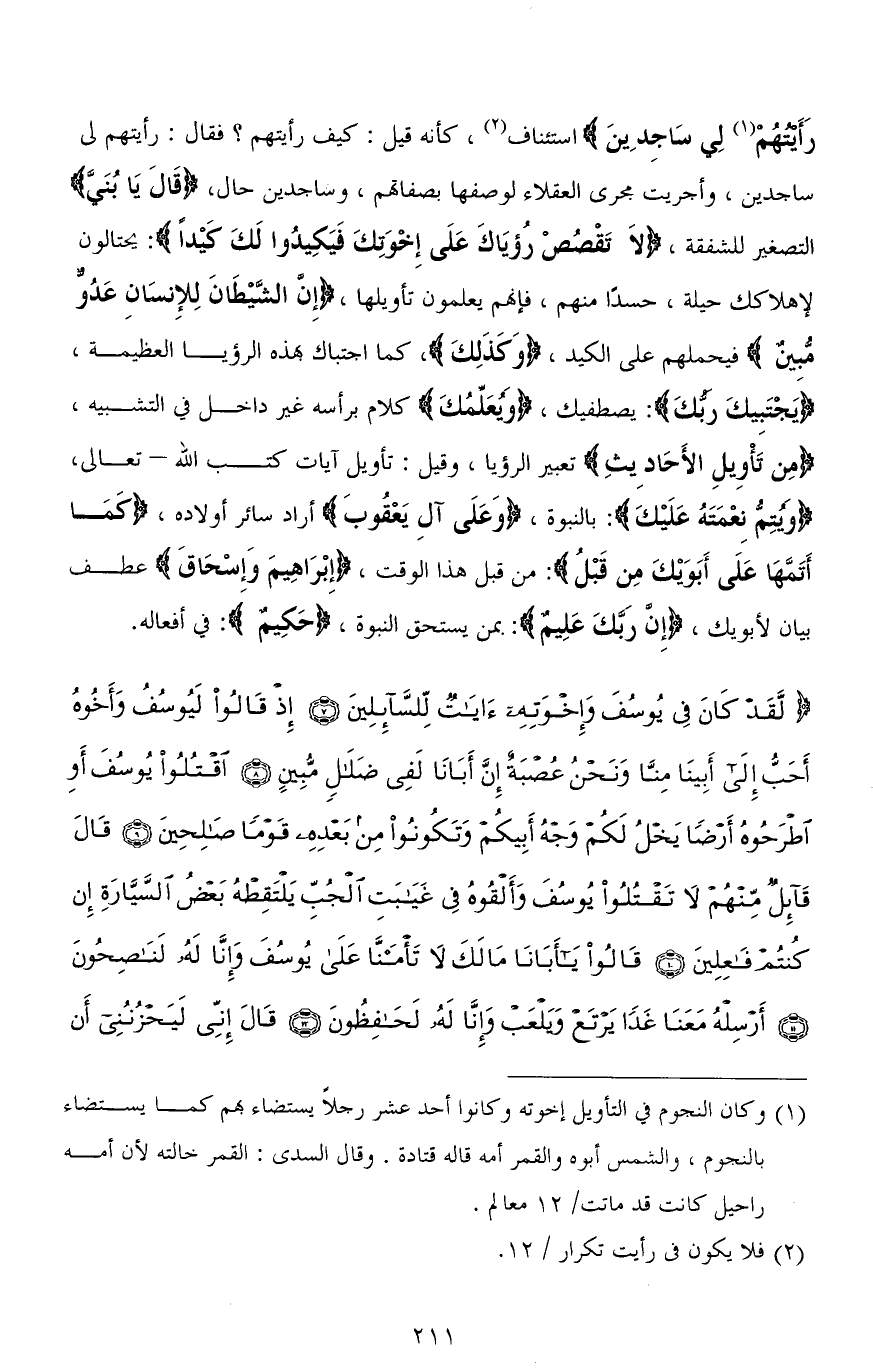 رَأَيْتُهُمْ(١) لِي سَاجِدِينَ ﴾ استئناف(٢) ، كأنه قيل : كيف رأيتهم ؟ فقال : رأيتهم لى
ساجدين ، وأجريت مجرى العقلاء لوصفها بصفاتهم ، وساجدين حال، ﴿قَالَ يَا بُنَيَّ﴾
التصغير للشفقة ، ﴿لاَ تَقْصُصْ رُؤْيَاكَ عَلَى إِخْوَتِكَ فَيَكِيدُوا لَكَ كَيْداً ﴾: يحتالون
لإهلاكك حيلة ، حسدًا منهم ، فإنهم يعلمون تأويلها ، ﴿إِنَّ الشَّيْطَانَ لِلإِنسَانِ عَدُوٌّ
مُّبِينٌ ﴾ فيحملهم على الكيد ، ﴿وَكَذَلِكَ ﴾، كما اجتباك بهذه الرؤيـــا العظيمـة ،
﴿يَجْتَبِيكَ رَبُّكَ﴾: يصطفيك ، ﴿وَيُعَلِّمُكَ﴾ كلام برأسه غير داخـل في التشـبيه ،
﴿مِن تَأْوِيلِ الأَحَادِيثِ﴾ تعبير الرؤيا ، وقيل : تأويل آيات كتـــب الله – تعـالى،
﴿وَيُتِمُّ نِعْمَتَهُ عَلَيْكَ﴾: بالنبوة ، ﴿وَعَلَى آلِ يَعْقُوبَ﴾ أراد سائر أولاده ، ﴿كَمَـا
أَتَمَّهَا عَلَى أَبَوَيْكَ مِن قَبْلُ﴾: من قبل هذا الوقت ، ﴿إِبْرَاهِيمَ وَإِسْحَاقَ ﴾ عطـف
بيان لأبويك ، ﴿إِنَّ رَبَّكَ عَلِيمٌ﴾: بمن يستحق النبوة ، ﴿حَكِيمٌ ﴾: في أفعاله.
﴿ لَّقَدْ كَانَ فِى يُوسُفَ وَإِخْوَتِهِۦٓ ءَايَـٰتٌ لِّلسَّآئِلِينَ ۝٧ إِذْ قَالُواْ لَيُوسُفُ وَأَخُوهُ
أَحَبُّ إِلَىٰٓ أَبِينَا مِنَّا وَنَحْنُ عُصْبَةٌ إِنَّ أَبَانَا لَفِى ضَلَـٰلٍ مُّبِينٍ ۝٨ ٱقْتُلُواْ يُوسُفَ أَوِ
ٱطْرَحُوهُ أَرْضًا يَخْلُ لَكُمْ وَجْهُ أَبِيكُمْ وَتَكُونُواْ مِنۢ بَعْدِهِۦ قَوْمًا صَـٰلِحِينَ ۝٩ قَالَ
قَآئِلٌ مِّنْهُمْ لَا تَقْتُلُواْ يُوسُفَ وَأَلْقُوهُ فِى غَيَـٰبَتِ ٱلْجُبِّ يَلْتَقِطْهُ بَعْضُ ٱلسَّيَّارَةِ إِن
كُنتُمْ فَـٰعِلِينَ ۝١٠ قَالُواْ يَـٰٓأَبَانَا مَالَكَ لَا تَأْمَ۫نَّا عَلَىٰ يُوسُفَ وَإِنَّا لَهُۥ لَنَـٰصِحُونَ
۝١١ أَرْسِلْهُ مَعَنَا غَدًا يَرْتَعْ وَيَلْعَبْ وَإِنَّا لَهُۥ لَحَـٰفِظُونَ ۝١٢ قَالَ إِنِّى لَيَحْزُنُنِىٓ أَن
(١) وكان النجوم في التأويل إخوته وكانوا أحد عشر رجلاً يستضاء بهم كمـــا يســتضاء
بالنجوم ، والشمس أبوه والقمر أمه قاله قتادة . وقال السدى : القمر خالته لأن أمـــه
راحيل كانت قد ماتت/ ١٢ معالم .
(٢) فلا يكون فى رأيت تكرار / ١٢.
٢١١